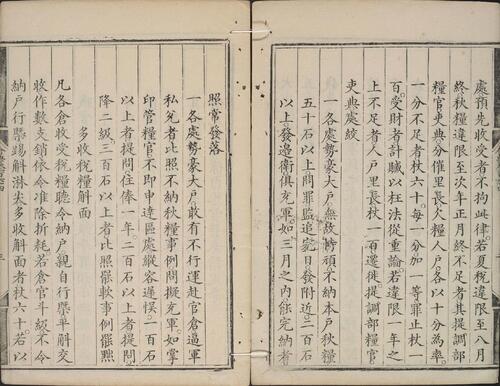 處預先收受者不拘此律若夏稅違限至八月
終秋糧違限至次年正月終不足者其提調部
糧官吏典分催里長欠糧人戶各以十分為率
一分不足者杖六十每一分加一等罪止杖一
百受財者計贓以枉法從重論若違限一年之
上不足者人戶里長杖一百遷徙提調部糧官
吏典處絞
一各處勢豪大戶無故恃頑不納本戶秋糧
五十石以上問罪監追完日發附近二百石
以上發邊衛俱充軍如三月之內能完納者
照常發落
一各處勢豪大戶敢有不行運赴官倉逼軍
私兌者比照不納秋糧事例問擬充軍如掌
印管糧官不即申達區處縱容遲悞一百石
以上者提問住俸一年二百石以上者提問
降二級三百石以上者比照罷軟事例罷黜
多收稅糧斛面
凡各倉收受稅糧聽令納戶親自行槩平斛交
收作數支銷依令准除折耗若倉官斗級不令
納戶行槩踢斛淋尖多收斛面者杖六十若以